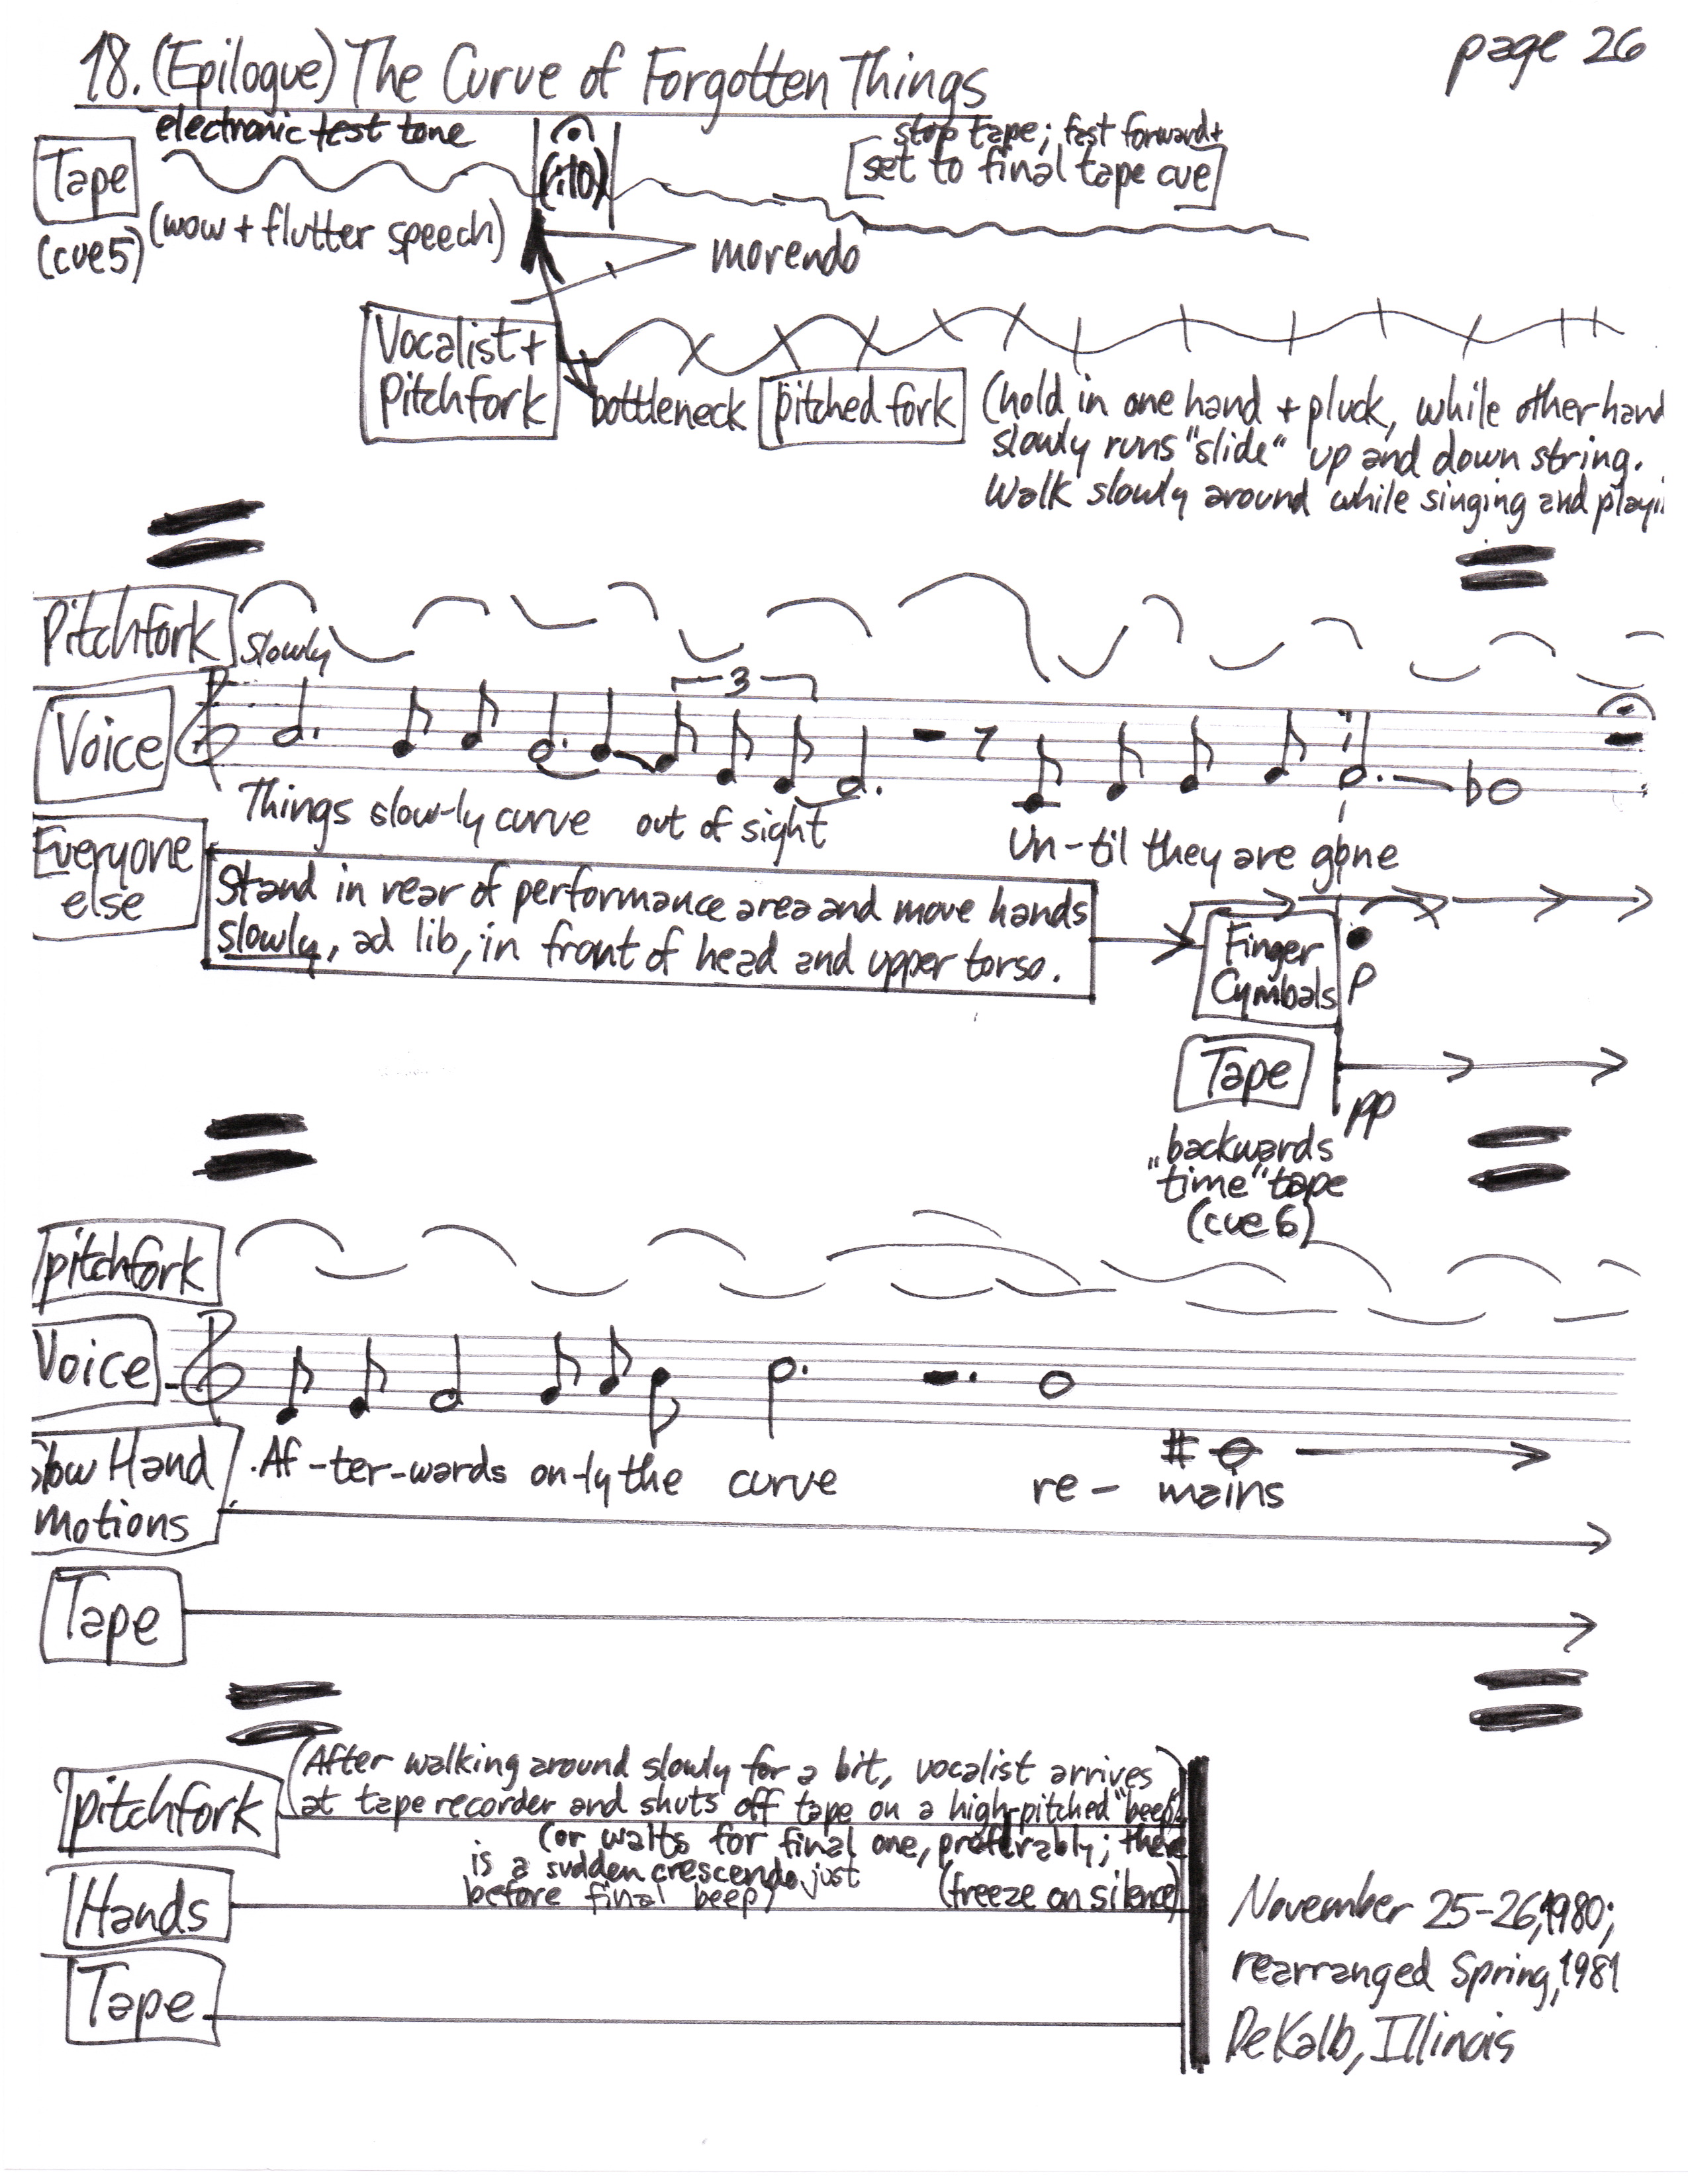 18. (Epilogue) The Curve of Forgotten Things
page 26
electronic test tone
Tape
(cue5)
(wow + flutter speech)
(:10)
stop tape; fast forward +
[set to final tape cue]
morendo
Vocalist +
Pitchfork
bottleneck
pitched fork
(hold in one hand + pluck, while other hand
slowly runs "slide" up and down string.
Walk slowly around while singing and playi
Pitchfork
Slowly
3
Voice
Things slow-ly curve out of sight
Un-til they are gone
Everyone
else
Stand in rear of performance area and move hands
slowly, ad lib, in front of head and upper torso.
Finger
Cymbals
p
Tape
pp
"backwards
"time" tape
(cue 6)
pitchfork
Voice
Af-ter-wards on-ly the curve re- mains
Slow Hand
Motions
Tape
pitchfork
(After walking around slowly for a bit, vocalist arrives
at tape recorder and shuts off tape on a high-pitched "beep"
(or waits for final one, preferably; there
is a sudden crescendo just
before final beep)
(freeze on silence)
Hands
Tape
November 25-26, 1980;
rearranged Spring, 1981
DeKalb, Illinois